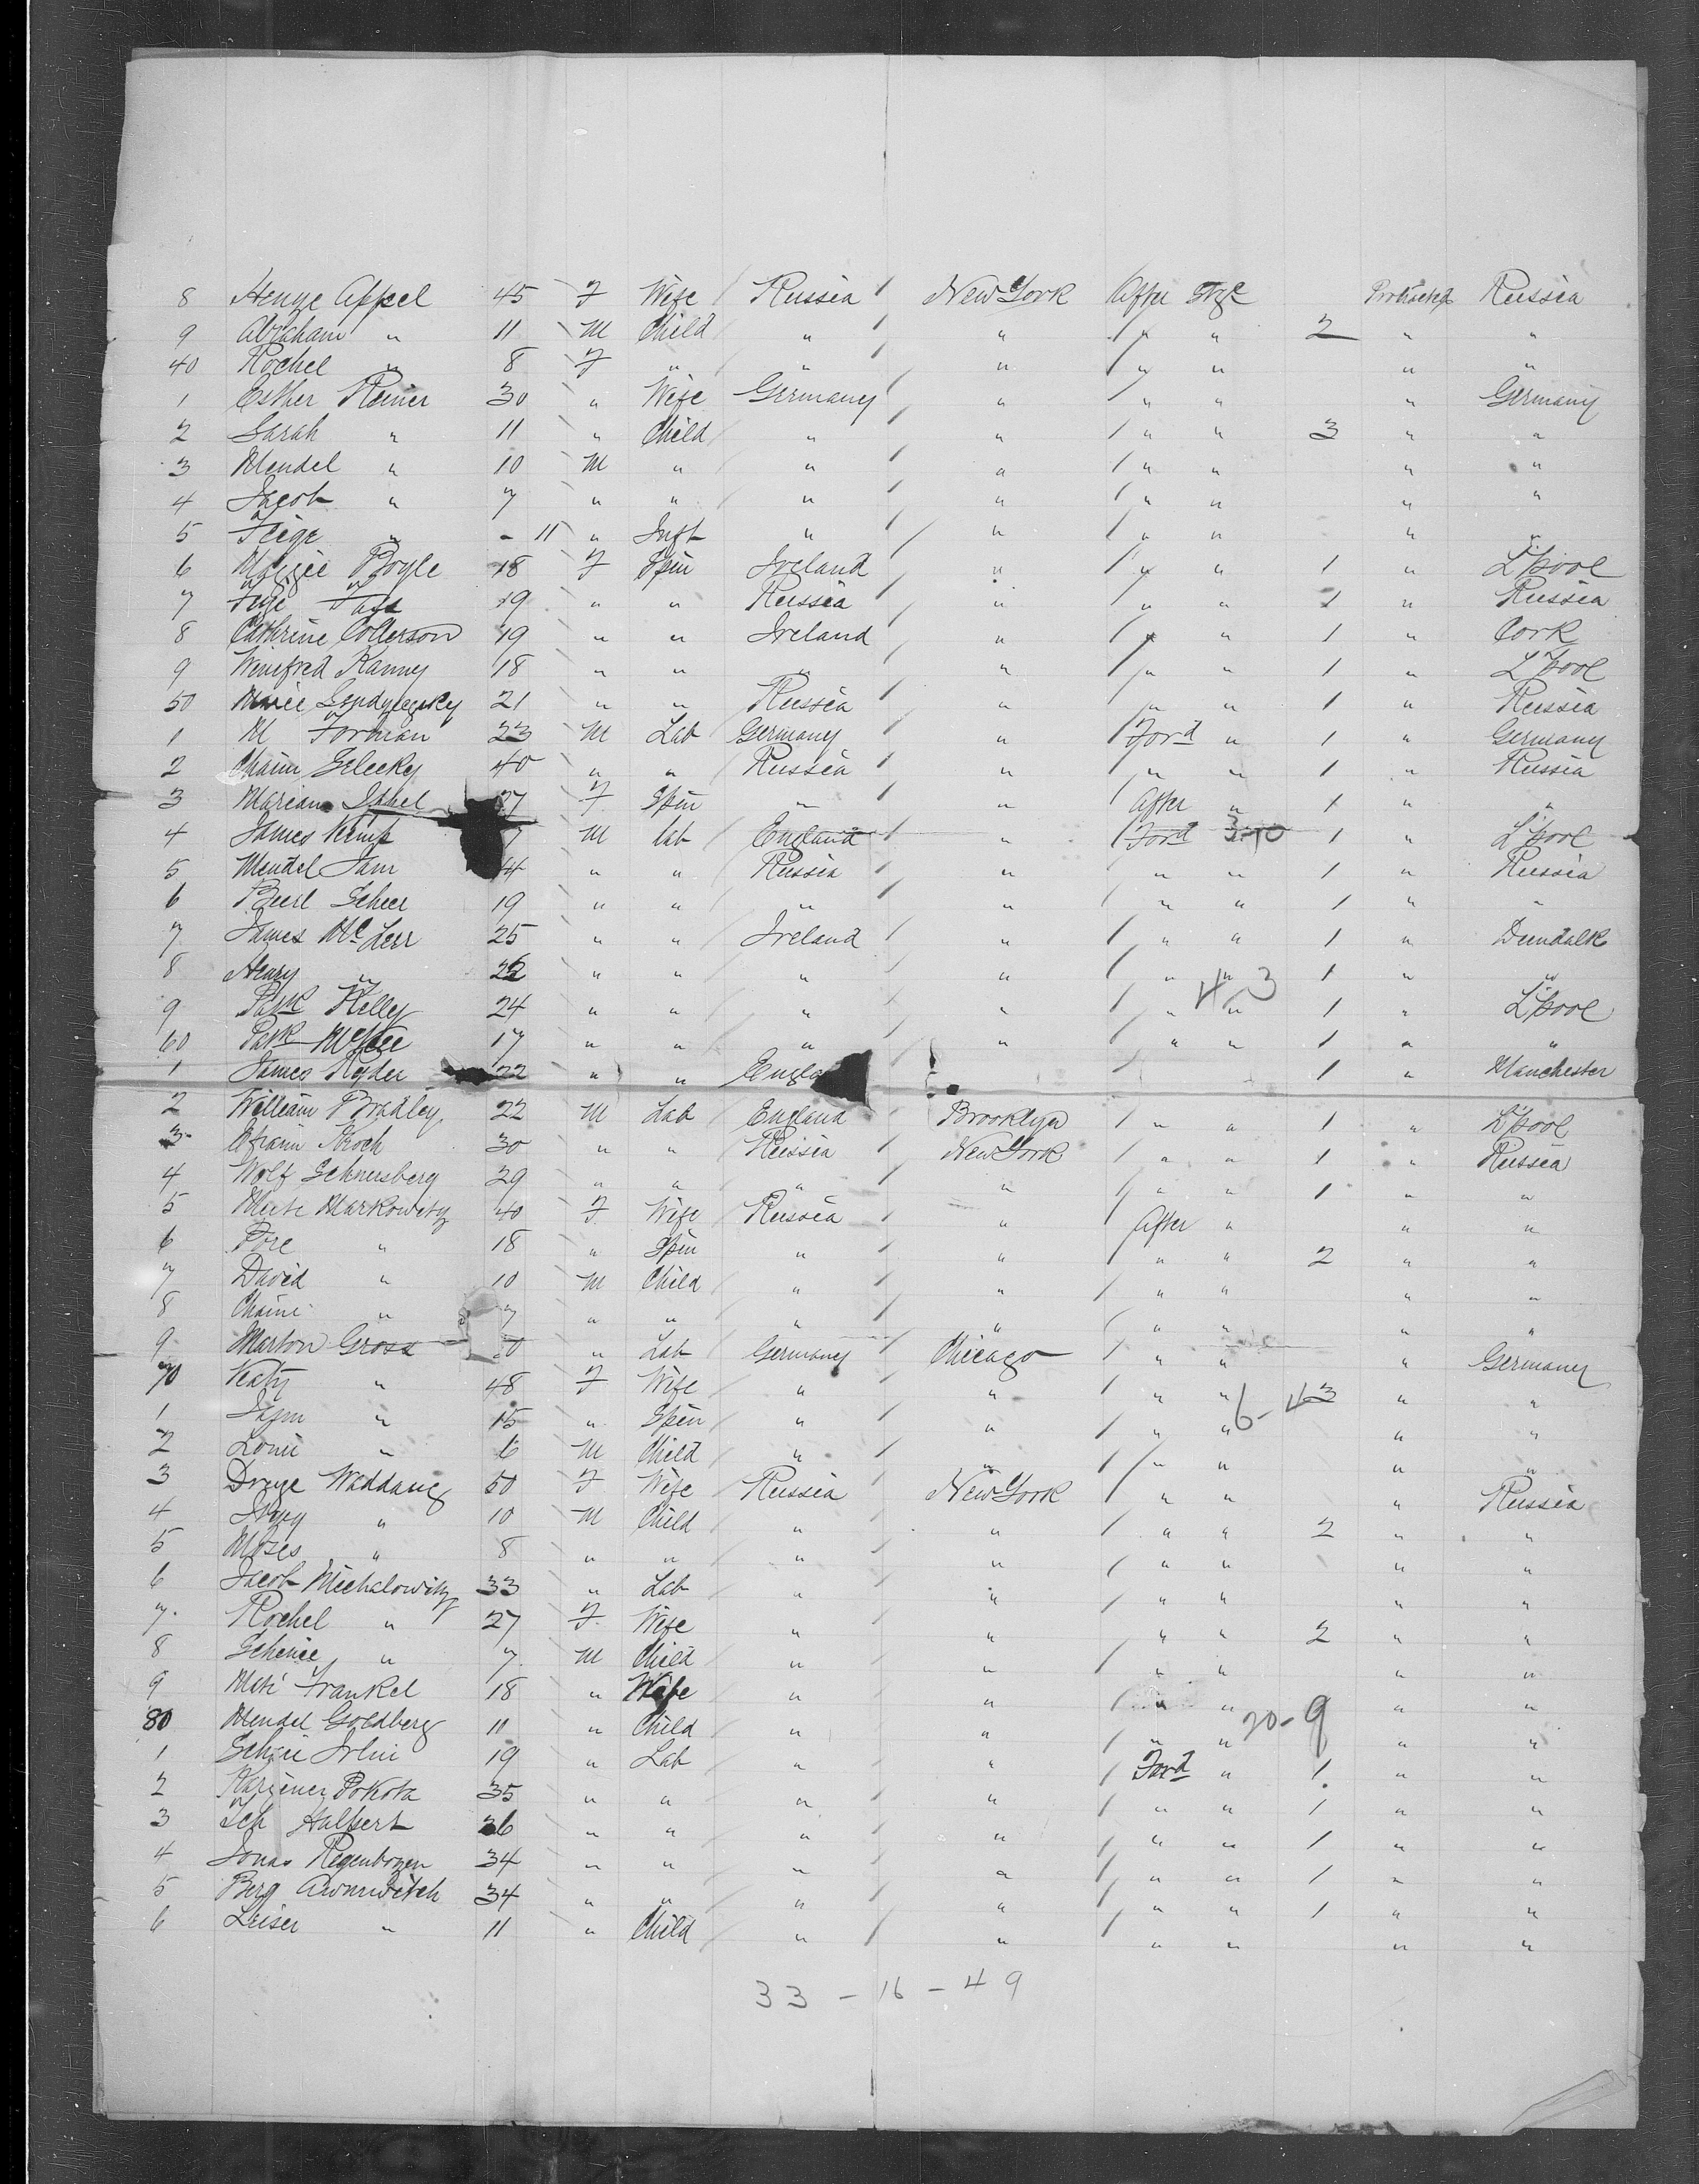 8 Henze Appel 45 F Wife Russia New York After Stge Protracted Russia
9 Abraham " 11 M Child " " " " 2 " "
40 Rochel " 8 F " " " " " " "
1 Esther Reiner 30 " Wife Germany " " " " Germany
2 Sarah " 11 " Child " " " " 3 " "
3 Mendel " 10 M " " " " " " "
4 Jacob " 7 " " " " " " " "
5 Feige " - 11 " Inft " " " " " "
6 Maggie Boyle 18 F Spin Ireland " " " 1 " L'pool
7 Feige 19 " " Russia " " " 1 " Russia
8 Cathrine Collerson 19 " " Ireland " " " 1 " Cork
9 Winifred Kanny 18 " " " " " " 1 " L'pool
50 21 " " Russia " " " 1 " Russia
1 M Forman 23 M Lab Germany " Ford " 1 " Germany
2 Chaim Selecky 40 " " Russia " " " 1 " Russia
3 Mariam 27 F Spin " " After " 1 " "
4 James Kemp 7 M lab England " Ford 3-10 1 " L'pool
5 Mendel Jam 44 " " Russia " " " 1 " Russia
6 Beerl Scheer 19 " " " " " " 1 " "
7 James Mc 25 " " Ireland " " " 1 " Dundalk
8 Henry " " " " " " " 1 " "
9 Patk Kelly 24 " " " " " " 4-3 1 " L'pool
60 Patk McGee 17 " " " " " " 1 " "
1 James Ryder 22 " " Engla 1 " Manchester
2 William Bradley 22 M Lab England Brooklyn " " 1 " L'pool
3 30 " " Russia New York " " 1 " Russia
4 Wolf Schneesberg 29 " " " " " " 1 " "
5 Markowitz 40 F Wife Russia " After " " "
6 " 18 " Spin " " " " 2 " "
7 David " 10 M Child " " " " " "
8 Chaim " 7 " " " " " " " "
9 Marton Gross 0 " Lab Germany Chicago " " " Germany
70 Katy " 48 F Wife " " " " 6-43 " "
1 " 15 " Spin " " " " " "
2 " 6 M Child " " " " " "
3 Waddang 50 F Wife Russia New York " " " Russia
4 " 10 M Child " " " " 2 " "
5 Moses " 8 " " " " " " " "
6 Jacob Michalowitz 33 " Lab " " " " " "
7 Rochel " 27 F Wife " " " " 2 " "
8 " 7 M Child " " " " " "
9 Frankel 18 " Wife " " " " " "
80 Mendel Goldberg 11 " Child " " " " 20-9 " "
1 19 " Lab " " Ford " 1 " "
2 Pokota 35 " " " " " " 1 " "
3 Halpert 26 " " " " " " 1 " "
4 Jonas Regenbogen 34 " " " " " " 1 " "
5 Berg 34 " " " " " " 1 " "
6 Leiser " 11 " Child " " " " " "
33 - 16 - 49